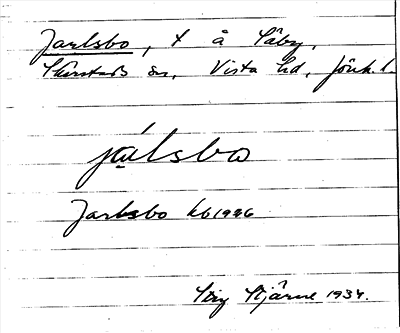 Jarlsbo, t å Säby,
Skärstads sn, Vista hd, Jönk. l.
jálsbo
Jarlsbo kb 1996
Stig Stjärne 1934.